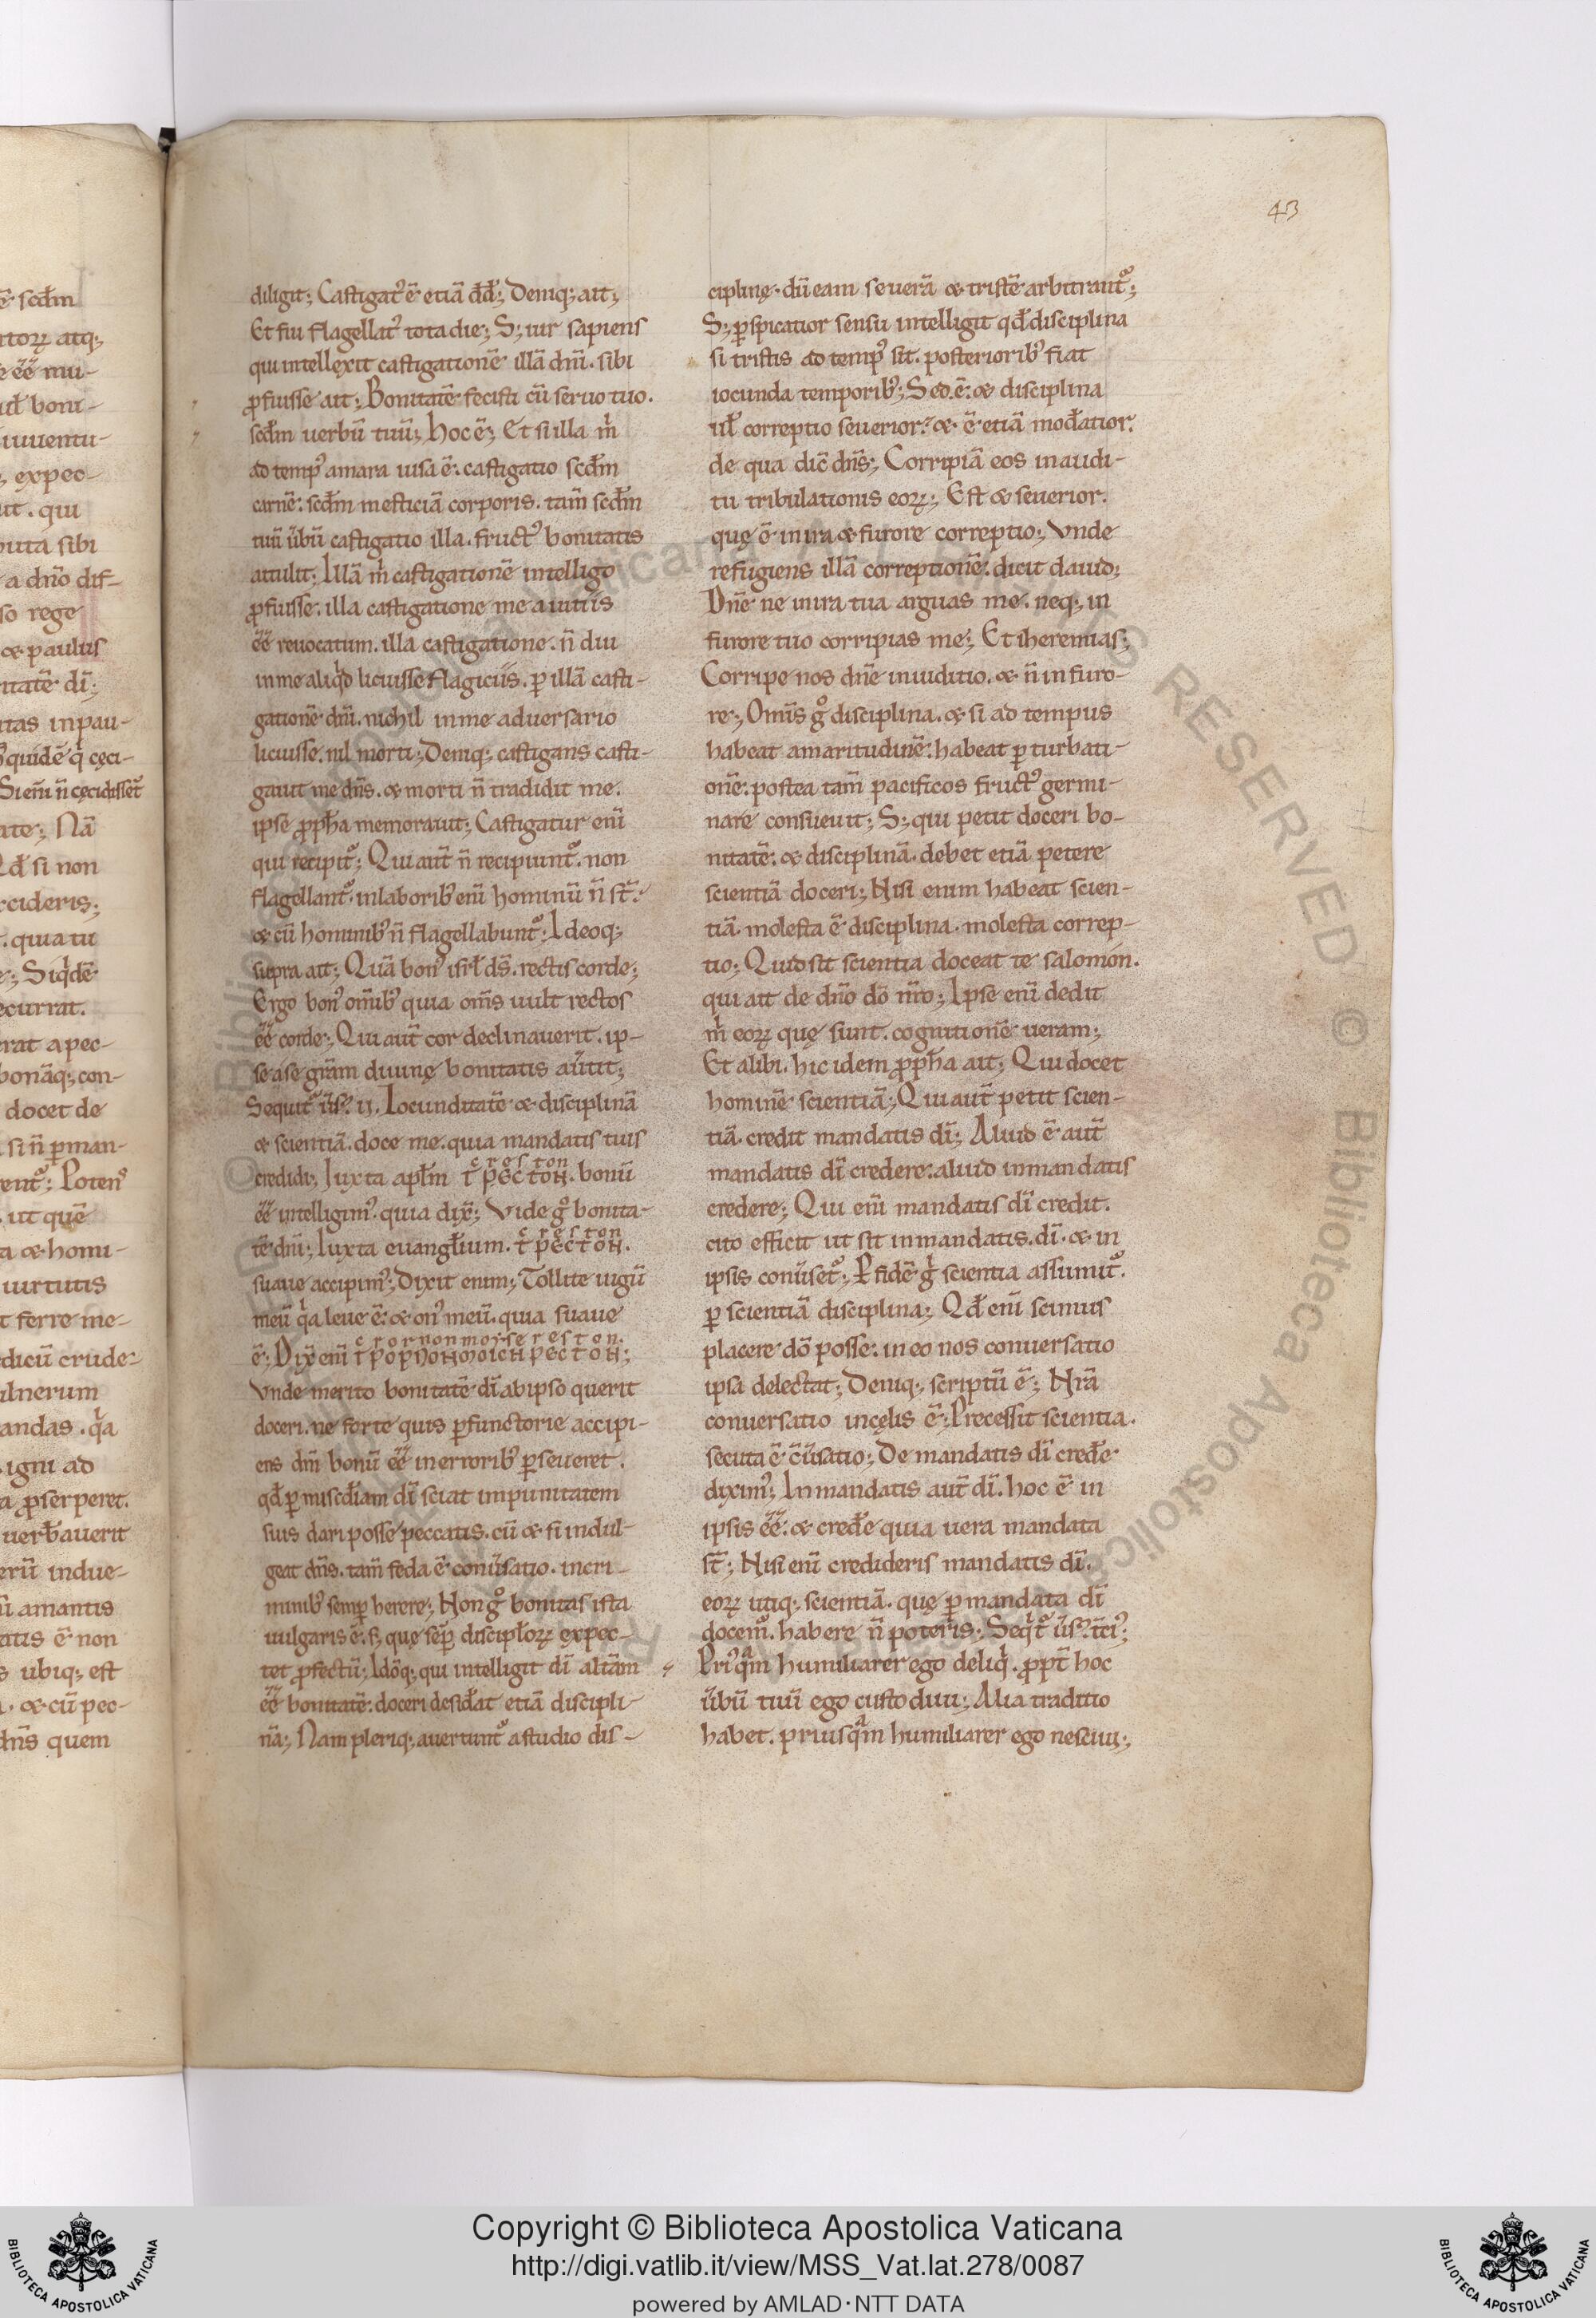 43
diligit; Castigat᾽ ē etiā dd̄; Deniq; ait;
Et fui flagellat᾽ tota die; S; uir sapiens
qui intellexit castigationē illā dn̄i. sibi
ꝓfuisse ait; Bonitatē fecisti cū seruo tuo.
scdm̄ uerbū tuū; hoc ē; Et si illa m̄
ad temp᾽ amara uisa ē. castigatio scdm̄
carnē. scdm̄ mesticiā corporis. tam̄ scdm̄
tuū ūbū castigatio illa. fruct᾽ bonitatis
attulit; Illā m̄ castigationē intelligo
ꝓfuisse. illa castigatione me a uitiis
ēē reuocatum. illa castigatione. n̄ diu
in me aliqd̄ licuisse flagiciis. ꝑ illā casti-
gationē dn̄i. nichil in me aduersario
licuisse. nil morti; Deniq; castigans casti-
gauit me dn̄s. & morti n̄ tradidit me.
ipse ꝓpħa memorauit; Castigatur eni̅
qui recipit᾽; Qui aut̄ n̄ recipiunt᾽. non
flagellant᾽. in laborib᾽ eni̅ hominū n̄ st̄.
& cū hominib᾽ n̄ flagellabunt᾽; Ideoq;
supra ait; Quā bon᾽ isrł ds̄. rectis corde;
Ergo bon᾽ omīb᾽ quia om̄s uult rectos
ēē corde; Qui aut̄ cor declinauerit. ip-
se a se grām diuinę bonitatis au̅tit;
Sequit᾽ ūs᾽ ii. Iocunditatē & disciplinā
& scientiā. doce me. quia mandatis tuis
creston
credidi; Iuxta apłm ΤΡΕCΤΟΝ. bonū
ēē intelligim᾽. quia dix̄; Vide g̊ bonita-
creston
tē dn̄i; Iuxta euangłium. ΤΡΕCΤΟΝ.
suaue accipim᾽; Dixit enim; Tollite iugū
meū qa leue ē. & on᾽ meū. quia suaue
ē; Dix̄ eni̅
Vnde merito bonitatē dī ab ipso querit
doceri. ne forte quis ꝑfunctorie accipi-
ens dn̄m bonū ēē in errorib᾽ ꝑseueret.
qd̄ ꝑ miscdīam dī sciat impunitatem
suis dari posse peccatis. cū & si indul-
geat dn̄s. tam̄ feda ē conūsatio. in cri-
minib᾽ semꝑ herere; Non g̊ bonitas ista
uulgaris ē. s; quę seꝑ discipłoꝝ expec-
tet ꝓfectū; Idōq; qui intelligit dī altām
ēē bonitatē. doceri desiđat etiā discipli-
nā; Nam pleriq; auertunt᾽ a studio dis-
ciplinę. dū eam seuerā & tristē arbitrant᾽;
S; ꝑspicatior sensu intelligit qd̄ disciplina
si tristis ad temp᾽ sit. posteriorib᾽ fiat
iocunda temporib᾽; Sed ē. & disciplina
uł correptio seuerior. & ē etiā modatior.
de qua dic̄ dn̄s; Corripiā eos in audi-
tu tribulationis eoꝝ; Est & seuerior.
quę ē in ira & furore correptio; Vnde
refugiens illā correptionē. dicit dauid;
Dn̄e ne in ira tua arguas me. neq; in
furore tuo corripias me; Et iheremias;
Corripe nos dn̄e in iuditio. & n̄ in furo-
re; Omīs g̊ disciplina. & si ad tempus
habeat amaritudinē. habeat ꝑturbati-
onē. postea tam̄ pacificos fruct᾽ germi-
nare consueuit; S; qui petit doceri bo-
nitatē. & disciplinā. debet etiā petere
scientiā doceri; Nisi enim habeat scien-
tiā. molesta ē disciplina. molesta correp-
tio; Quid sit scientia doceat te salomon.
qui ait de dn̄o dō nr̄o; Ipse eni̅ dedit
m̄ eoꝝ quę sunt. cognitionē ueram;
Et alibi. hic idem ꝓpħa ait; Qui docet
hominē scientiā; Qui aut̄ petit scien-
tiā. credit mandatis dī; Aliud ē aut̄
mandatis dī credere. aliud in mandatis
credere; Qui eni̅ mandatis dī credit.
cito efficit ut sit in mandatis. dī. & in
ipsis conūset᾽; P fidē g scientia assumit᾽.
ꝑ scientiā disciplina; Qd̄ eni̅ scimus
placere dō posse. in eo nos conuersatio
ipsa delectat; Deniq; scriptū ē; Nr̄a
conuersatio in cęlis ē; Precessit scientia.
secuta ē c̄ūsatio; De mandatis dī credē
dixim᾽; In mandatis aut̄ dī. hoc ē in
ipsis ēē. & credē quia uera mandata
st̄; Nisi eni̅ credideris mandatis dī.
eoꝝ utiq; scientiā. quę ꝑ mandata dī
docem᾽. habere n̄ poteris; Seqt᾽ ūs᾽ tci᾽;
Pri᾽qm̄ humiliarer ego deliq. ꝓpt̄ hoc
ūbū tuū ego custodiui; Alia traditio
habet. priusqm̄ humiliarer ego nesciui;
Copyright © Biblioteca Apostolica Vaticana
http://digi.vatlib.it/view/MSS_Vat.lat.278/0087
powered by AMLAD·NTT DATA
BIBLIOTECA APOSTOLICA VATICANA
BIBLIOTECA APOSTOLICA VATICANA